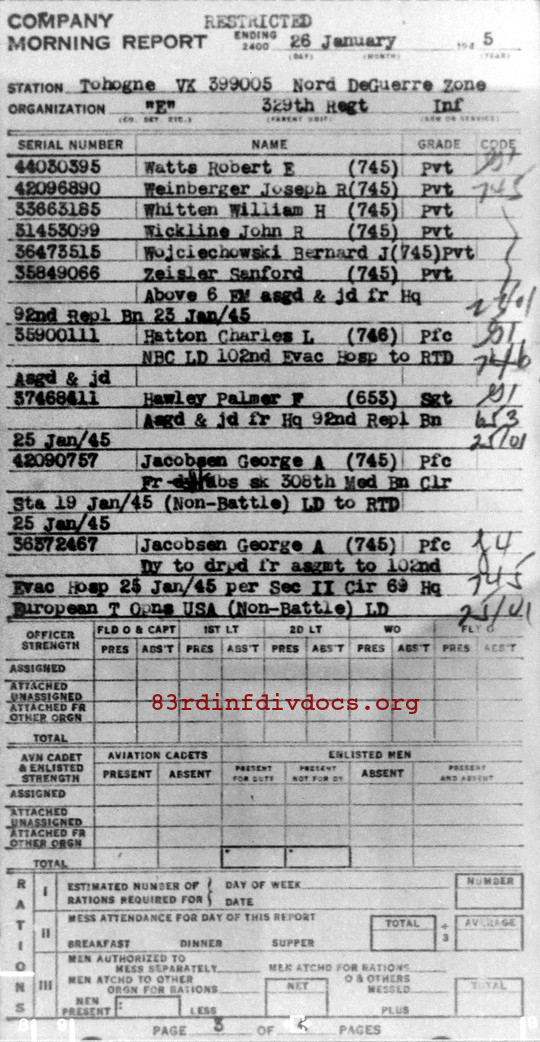 COMPANY MORNING REPORT
RESTRICTED
ENDING 2400 26 January 194 5
(DAY) (MONTH) (YEAR)
STATION Tohogne VK 399005 Nord DeGuerre Zone
ORGANIZATION "E" 329th Regt Inf
(CO. DET. ETC.) (PARENT UNIT) (ARM OR SERVICE)
SERIAL NUMBER NAME GRADE CODE
44030395 Watts Robert E (745) Pvt
42096890 Weinberger Joseph R(745) Pvt 745
33663185 Whitten William H (745) Pvt
31453099 Wickline John R (745) Pvt
36473515 Wojciechowski Bernard J(745)Pvt
35849066 Zeisler Sanford (745) Pvt
Above 6 EM asgd & jd fr Hq
92nd Repl Bn 23 Jan/45
35900111 Hatton Charles L (746) Pfc
NBC LD 102nd Evac Hosp to RTD 746
Asgd & jd
37468411 Hawley Palmer F (653) Sgt
Asgd & jd fr Hq 92nd Repl Bn 653
25 Jan/45 25/01
42090757 Jacobsen George A (745) Pfc
Fr abs sk 308th Med Bn Clr
Sta 19 Jan/45 (Non-Battle) LD to RTD
25 Jan/45
36372467 Jacobsen George A (745) Pfc
Dy to drpd fr asgmt to 102nd
Evac Hosp 25 Jan/45 per Sec II Cir 69 Hq 745
European T Opns USA (Non-Battle) LD 25/01
OFFICER STRENGTH FLD O & CAPT 1ST LT 2D LT WO FLT O
PRES ABS'T PRES ABS'T PRES ABS'T PRES ABS'T PRES ABS'T
ASSIGNED
ATTACHED UNASSIGNED
ATTACHED FR OTHER ORGN
TOTAL
83rdinfdivdocs.org
AVN CADET & ENLISTED STRENGTH AVIATION CADETS ENLISTED MEN
PRESENT ABSENT PRESENT FOR DUTY PRESENT NOT FOR DY ABSENT PRESENT AND ABSENT
ASSIGNED
ATTACHED UNASSIGNED
ATTACHED FR OTHER ORGN
TOTAL
RATIONS
I ESTIMATED NUMBER OF RATIONS REQUIRED FOR { DAY OF WEEK DATE NUMBER
II MESS ATTENDANCE FOR DAY OF THIS REPORT TOTAL ÷ 3 AVERAGE
BREAKFAST DINNER SUPPER
III MEN AUTHORIZED TO MESS SEPARATELY MEN ATCHD FOR RATIONS
MEN ATCHD TO OTHER ORGN FOR RATIONS NET O & OTHERS MESSED TOTAL
MEN PRESENT LESS PLUS
PAGE 3 OF PAGES